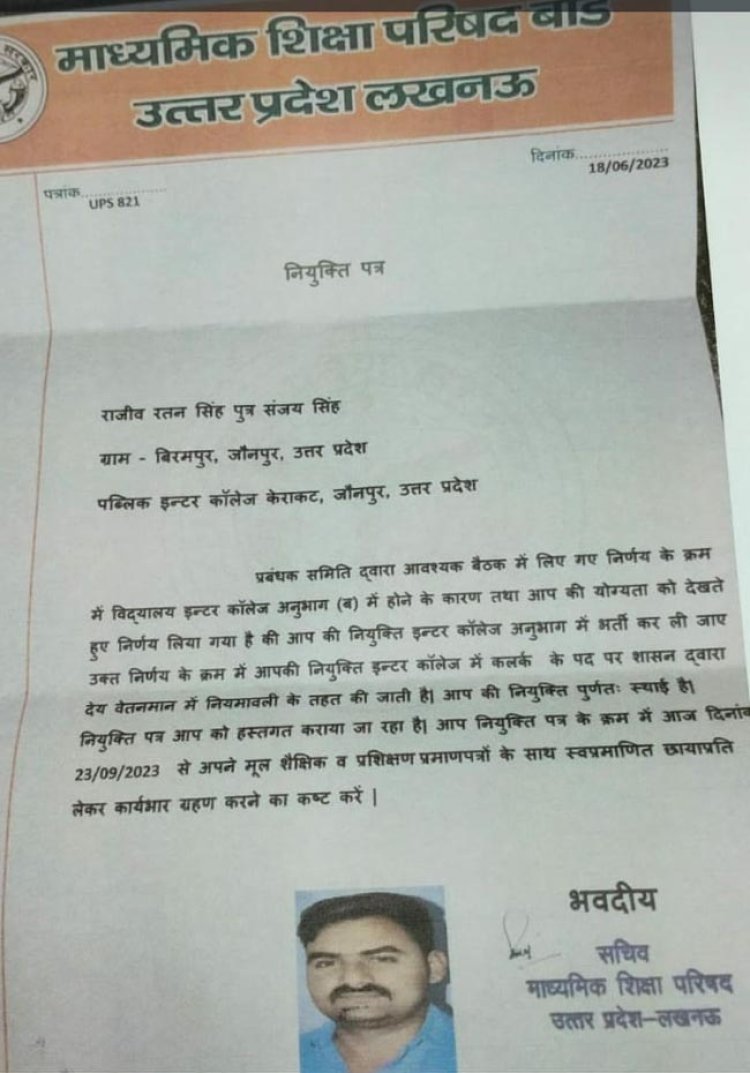 सरकार
माध्यमिक शिक्षा परिषद बोर्ड
उत्तर प्रदेश लखनऊ
पत्रांक....................
UPS 821
दिनांक......................
18/06/2023
नियुक्ति पत्र
राजीव रतन सिंह पुत्र संजय सिंह
ग्राम - बिरमपुर, जौनपुर, उत्तर प्रदेश
पब्लिक इन्टर कॉलेज केराकट, जौनपुर, उत्तर प्रदेश
प्रबंधक समिति द्वारा आवश्यक बैठक में लिए गए निर्णय के क्रम
में विद्यालय इन्टर कॉलेज अनुभाग (ब) में होने के कारण तथा आप की योग्यता को देखते
हुए निर्णय लिया गया है की आप की नियुक्ति इन्टर कॉलेज अनुभाग में भर्ती कर ली जाए
उक्त निर्णय के क्रम में आपकी नियुक्ति इन्टर कॉलेज में कलर्क के पद पर शासन द्वारा
देय वेतनमान में नियमावली के तहत की जाती है| आप की नियुक्ति पुर्णतः स्थाई है|
नियुक्ति पत्र आप को हस्तगत कराया जा रहा है| आप नियुक्ति पत्र के क्रम में आज दिनांक
23/09/2023 से अपने मूल शैक्षिक व प्रशिक्षण प्रमाणपत्रों के साथ स्वप्रमाणित छायाप्रति
लेकर कार्यभार ग्रहण करने का कष्ट करें |
भवदीय
सचिव
माध्यमिक शिक्षा परिषद
उत्तर प्रदेश–लखनऊ